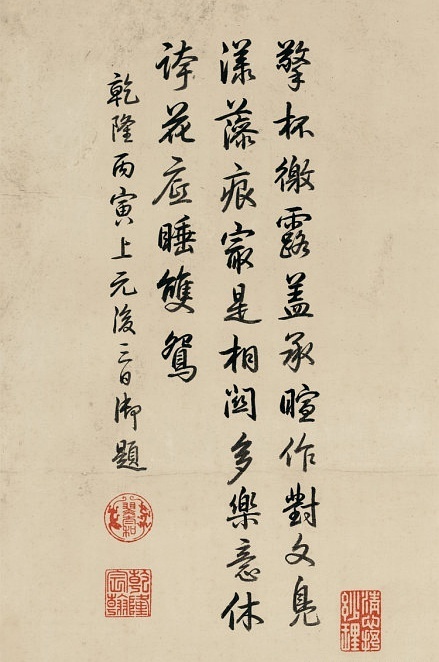 擎杯徼露盖承暄作對文鳧
漾藻痕㝡是相関多樂意休
誇花底睡雙鴛
乾隆丙寅上元後三日御題
乾隆宸翰